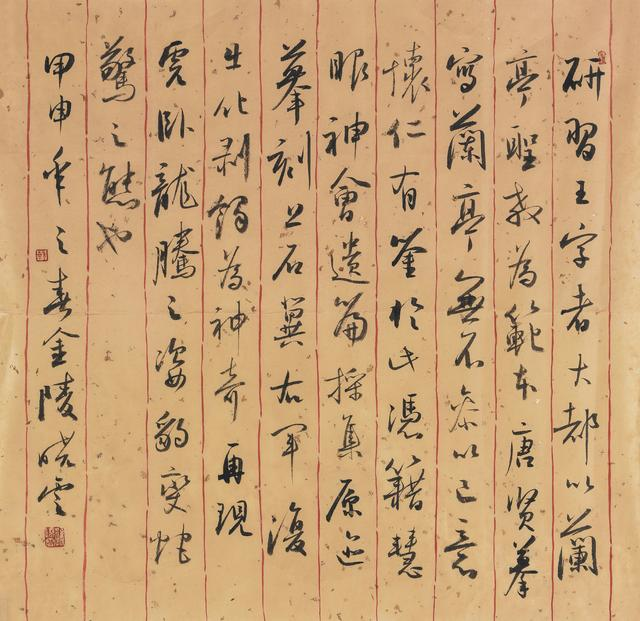 研習王字者大都以蘭
亭聖教為範本唐賢摹
寫蘭亭無不參以己意
懷仁有鉴於此憑籍慧
眼神會遺篇採集原迹
摹刻上石冀右軍復
生化剥蝕為神奇再現
虎卧龍騰之姿豹變蛇
驚之態也
甲申年之春金陵晓雲